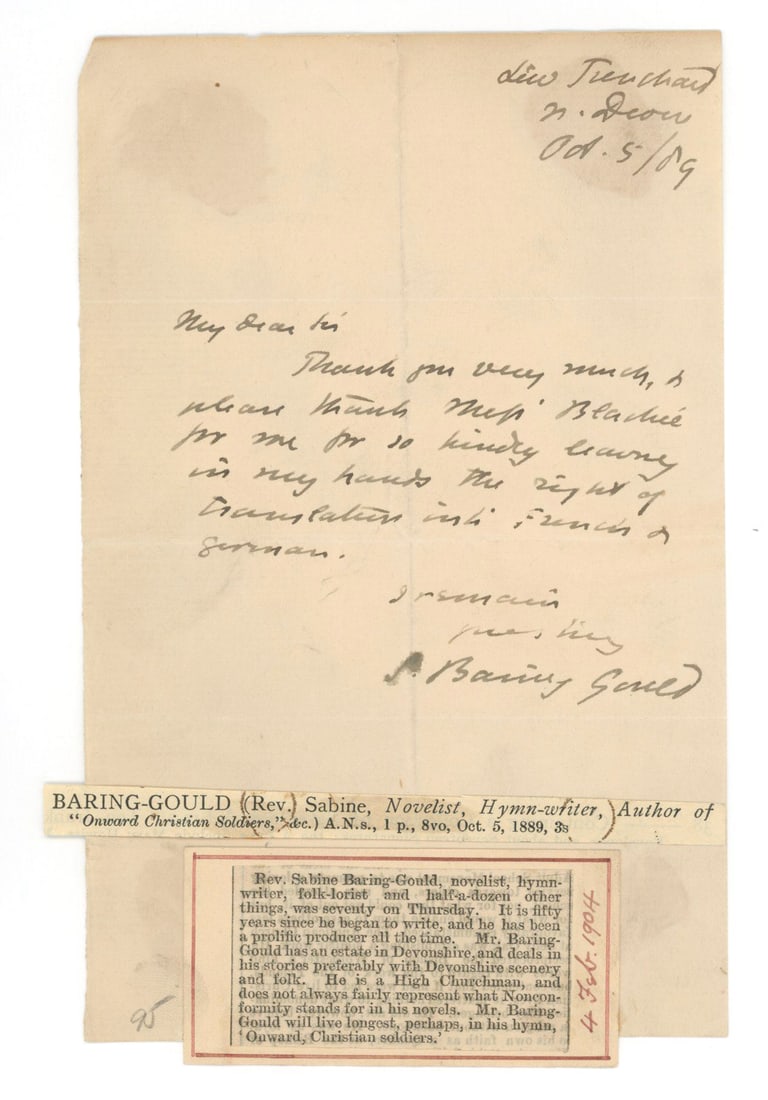 Lew Trenchard
N. Devon
Oct. 5/89
My dear Sir
Thank you very much, &
please thank Messrs Blackie
for me for so kindly leaving
in my hands the right of
translation into French &
German.
I remain
yrs truly
S. Baring Gould
BARING-GOULD (Rev.) Sabine, Novelist, Hymn-writer, Author of
"Onward Christian Soldiers," &c.) A.N.s., 1 p., 8vo, Oct. 5, 1889, 3s
Rev. Sabine Baring-Gould, novelist, hymn-
writer, folk-lorist and half-a-dozen other
things, was seventy on Thursday. It is fifty
years since he began to write, and he has been
a prolific producer all the time. Mr. Baring-
Gould has an estate in Devonshire, and deals in
his stories preferably with Devonshire scenery
and folk. He is a High Churchman, and
does not always fairly represent what Noncon-
formity stands for in his novels. Mr. Baring-
Gould will live longest, perhaps, in his hymn,
'Onward, Christian soldiers.'
4 Feb. 1904
95